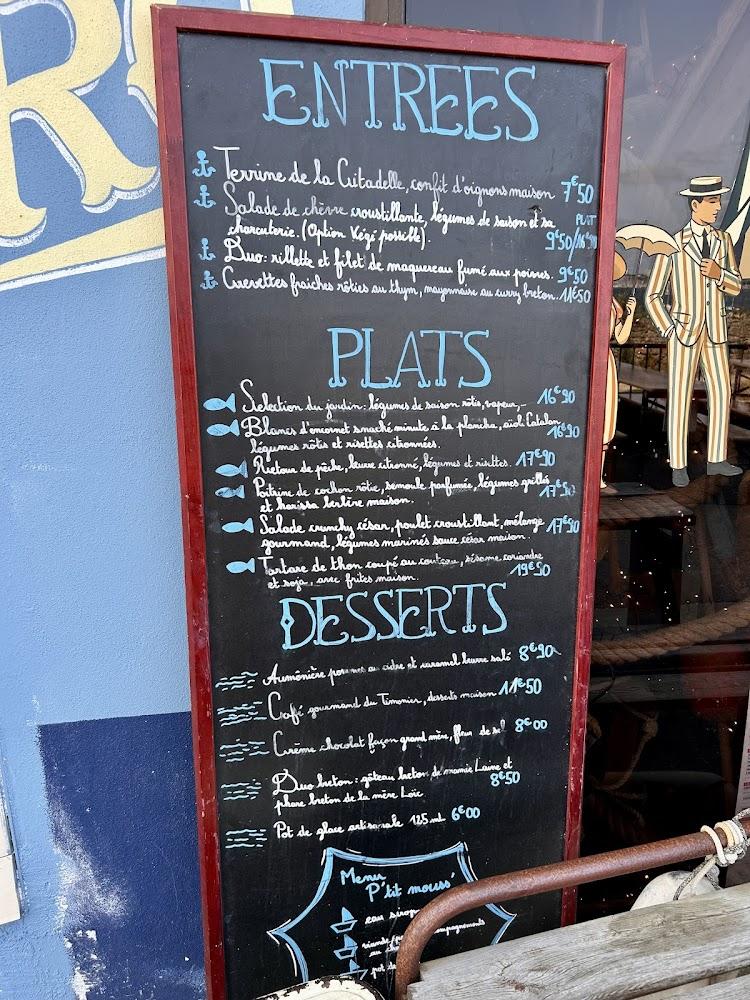 ENTREES
Terrine de la Citadelle, confit d'oignons maison 7€50
Salade de chèvre croustillante, légumes de saison et sa PLAT
charcuterie. (Option Végé possible). 9€50/16€90
Duo: rillette et filet de maquereau fumé aux poivres. 9€50
Crevettes fraîches rôties au thym, mayonnaise au curry breton. 11€50
PLATS
Selection du jardin: légumes de saison rôtis, vapeur,... 16€90
Blancs d'encornet snacké minute à la plancha, aïoli Catalan 16€90
légumes rôtis et risettes citronnées.
Retour de pêche, beurre citronné, légumes et risettes. 17€90
Poitrine de cochon rôtie, semoule parfumée, légumes grillés 17€50
et harissa berbère maison.
Salade crunchy césar, poulet croustillant, mélange 17€90
gourmand, légumes marinés sauce césar maison.
Tartare de thon coupé au couteau, sésame coriandre 19€50
et soja, avec frites maison.
DESSERTS
Aumônière pommes au cidre et caramel beurre salé 8€90
Café gourmand du Timonier, desserts maison 11€50
Crème chocolat façon grand mère, fleur de sel 8€00
Duo breton: gâteau breton de mamie Laine et 8€50
phare breton de la mère Loïc
Pot de glace artisanale 125 ml 6€00
Menu
P'tit mouss'
eau sirop
viande/
pot de